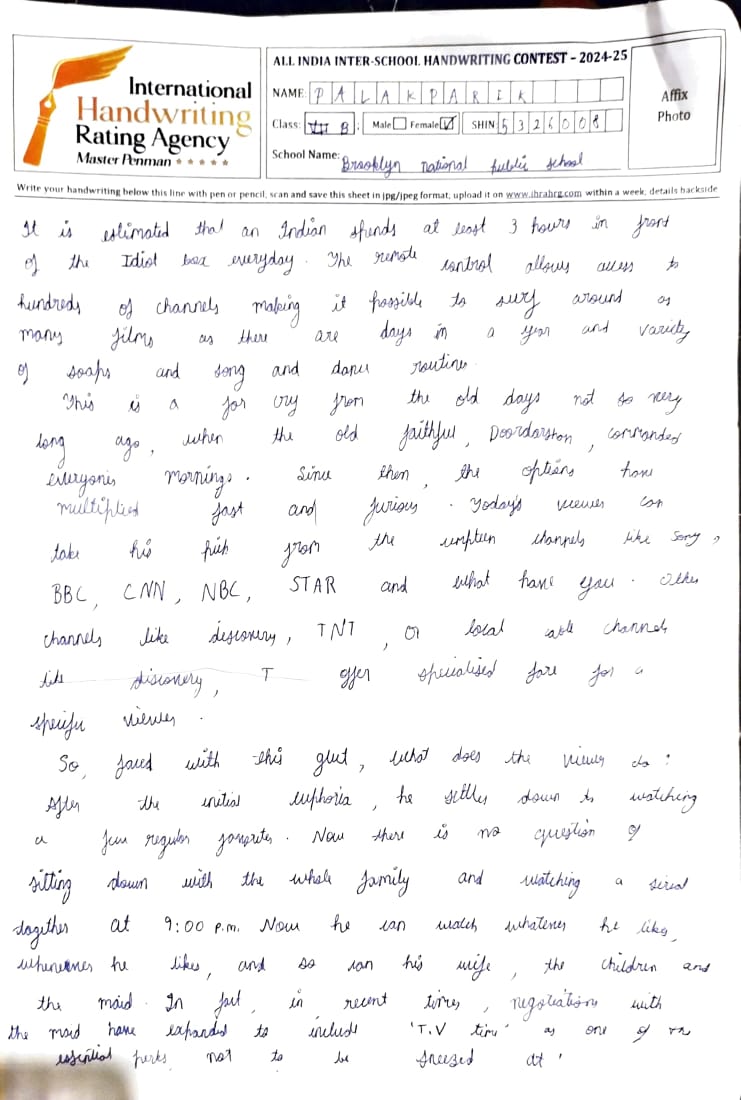 International
Handwriting
Rating Agency
Master Penman
ALL INDIA INTER-SCHOOL HANDWRITING CONTEST - 2024-25
NAME: PALAK PARIK
Class: VII B Male Female SHIN: 5326008
School Name: Brooklyn national public school
Affix
Photo
Write your handwriting below this line with pen or pencil, scan and save this sheet in jpg/jpeg format, upload it on www.ihrahrg.com within a week, details backside
It is estimated that an Indian spends at least 3 hours in front
of the Idiot box everyday. The remote control allows access to
hundreds of channels making it possible to surf around as
many films as there are days in a year and variety
of soaps and song and dance routines.
This is a far cry from the old days not so very
long ago, when the old faithful, Doordarshan, commanded
everyone's mornings. Since then, the options have
multiplied fast and furious. Today's viewer can
take his pick from the umpteen channels like Sony,
BBC, CNN, NBC, STAR and what have you. Other
channels like discovery, TNT, or local cable channels
like discovery, T offer specialised fare for a
specific viewer.
So, faced with this glut, what does the viewer do?
After the initial euphoria, he settles down to watching
a few regular favourites. Now there is no question of
sitting down with the whole family and watching a serial
together at 9:00 P.M. Now he can watch whatever he likes,
whenever he likes, and so can his wife, the children and
the maid. In fact, in recent times, negotiations with
the maid have expanded to include 'T.V time' as one of
essential perks not to be sneezed at'